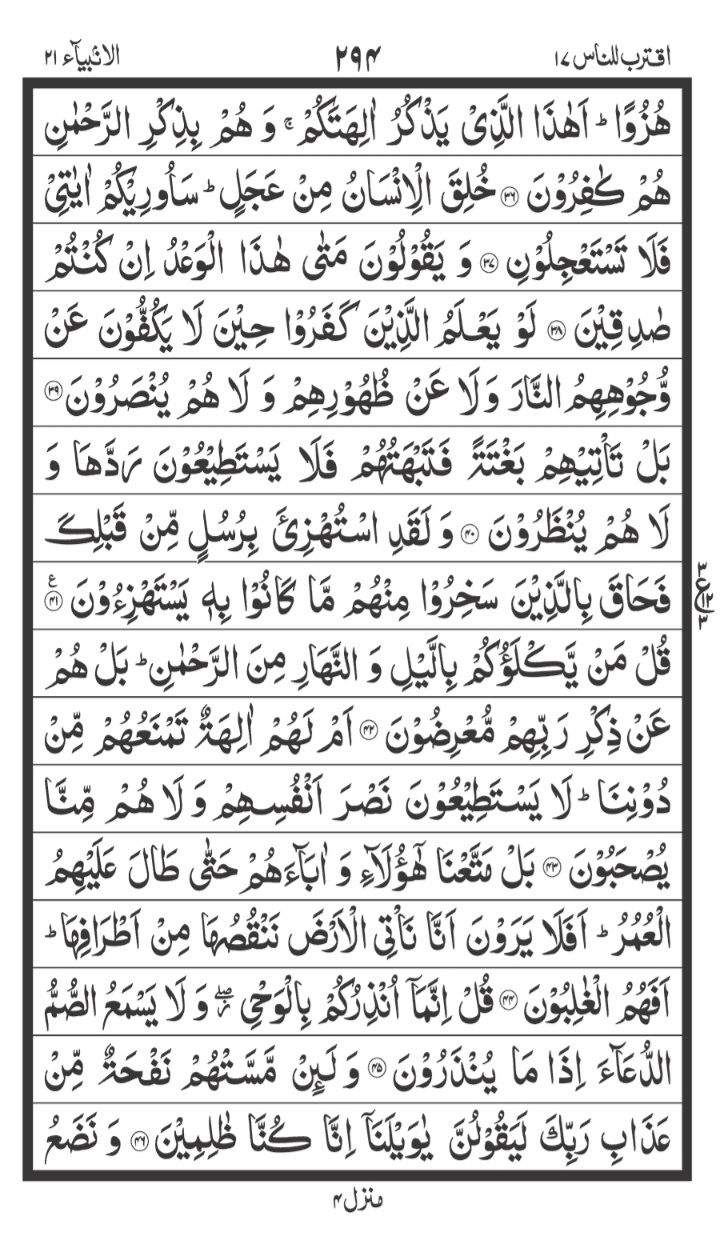 اقترب للناس ۱۷ ۲۹۴ الانبیآء ۲۱
هُزُوًا ؕ اَهٰذَا الَّذِیْ یَذْكُرُ اٰلِهَتَكُمْ ۚ وَ هُمْ بِذِكْرِ الرَّحْمٰنِ
هُمْ كٰفِرُوْنَ ۳۶ خُلِقَ الْاِنْسَانُ مِنْ عَجَلٍ ؕ سَاُورِیْكُمْ اٰیٰتِیْ
فَلَا تَسْتَعْجِلُوْنِ ۳۷ وَ یَقُوْلُوْنَ مَتٰی هٰذَا الْوَعْدُ اِنْ كُنْتُمْ
صٰدِقِیْنَ ۳۸ لَوْ یَعْلَمُ الَّذِیْنَ كَفَرُوْا حِیْنَ لَا یَكُفُّوْنَ عَنْ
وُّجُوْهِهِمُ النَّارَ وَلَا عَنْ ظُهُوْرِهِمْ وَ لَا هُمْ یُنْصَرُوْنَ ۳۹
بَلْ تَاْتِیْهِمْ بَغْتَةً فَتَبْهَتُهُمْ فَلَا یَسْتَطِیْعُوْنَ رَدَّهَا وَ
لَا هُمْ یُنْظَرُوْنَ ۴۰ وَ لَقَدِ اسْتُهْزِئَ بِرُسُلٍ مِّنْ قَبْلِكَ
فَحَاقَ بِالَّذِیْنَ سَخِرُوْا مِنْهُمْ مَّا كَانُوْا بِهٖ یَسْتَهْزِءُوْنَ ۴۱ ع
۳ ع ۱۲ ۳
قُلْ مَنْ یَّكْلَؤُكُمْ بِالَّیْلِ وَ النَّهَارِ مِنَ الرَّحْمٰنِ ؕ بَلْ هُمْ
عَنْ ذِكْرِ رَبِّهِمْ مُّعْرِضُوْنَ ۴۲ اَمْ لَهُمْ اٰلِهَةٌ تَمْنَعُهُمْ مِّنْ
دُوْنِنَا ؕ لَا یَسْتَطِیْعُوْنَ نَصْرَ اَنْفُسِهِمْ وَ لَا هُمْ مِّنَّا
یُصْحَبُوْنَ ۴۳ بَلْ مَتَّعْنَا هٰۤؤُلَآءِ وَ اٰبَآءَهُمْ حَتّٰی طَالَ عَلَیْهِمُ
الْعُمُرُ ؕ اَفَلَا یَرَوْنَ اَنَّا نَاْتِی الْاَرْضَ نَنْقُصُهَا مِنْ اَطْرَافِهَا ؕ
اَفَهُمُ الْغٰلِبُوْنَ ۴۴ قُلْ اِنَّمَاۤ اُنْذِرُكُمْ بِالْوَحْیِ ۖ٘ وَ لَا یَسْمَعُ الصُّمُّ
الدُّعَآءَ اِذَا مَا یُنْذَرُوْنَ ۴۵ وَ لَىِٕنْ مَّسَّتْهُمْ نَفْحَةٌ مِّنْ
عَذَابِ رَبِّكَ لَیَقُوْلُنَّ یٰوَیْلَنَاۤ اِنَّا كُنَّا ظٰلِمِیْنَ ۴۶ وَ نَضَعُ
منزل ۴